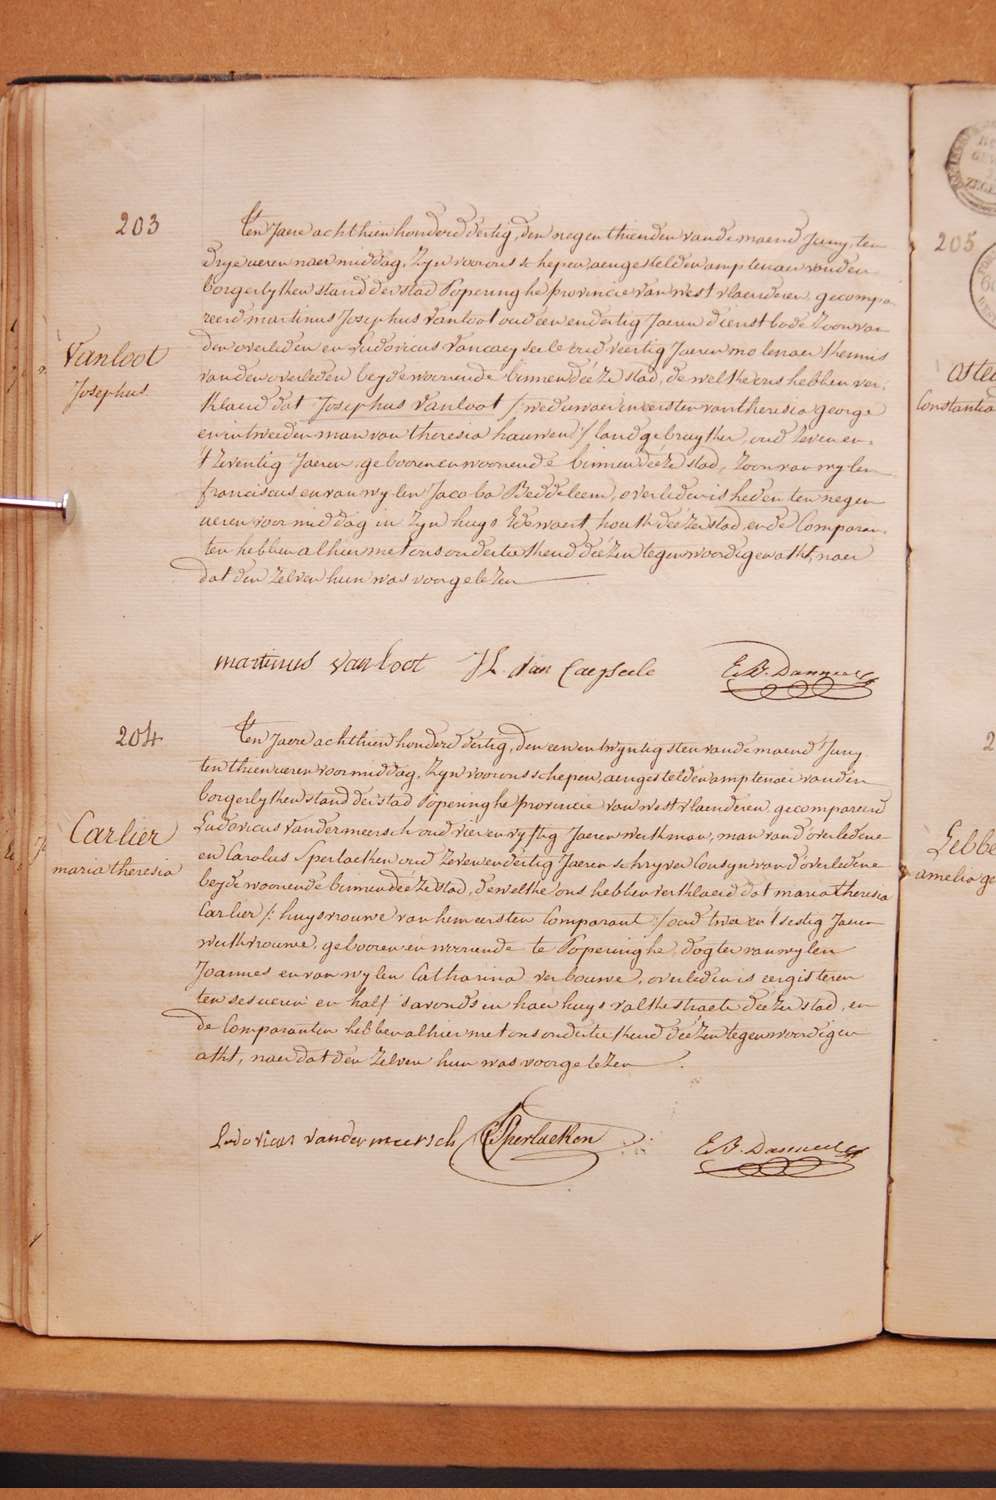 203
Ten Jaere achthien honderd dertig, den negenthienden van de maend Juny, ten
drye ueren naermiddag, Zyn voor ons schepen, aengestelden amptenaer van den
borgerlyken stand der stad Poperinghe provincie van west vlaenderen, gecompa-
reerd martinus Josephus Vanloot oud een en dertig Jaeren dienstbode Zoon van
den overleden en Ludovicus Vancaeyseele oud veertig Jaeren molenaer
van den overleden beyde woonende binnen deéze stad, de welke ons hebben ver-
klaerd dat Josephus Vanloot /weduwaer in eersten van theresia george
en in tweeden man van theresia hauwen/ landgebruyker, oud Zeven en
't Zeventig Jaeren, gebooren en woonende binnen deéze stad, Zoon van wylen
franciscus en van wylen Jacoba Beddeleem, overleden is heden ten negen
ueren voormiddag in Zyn huys Edewaert houk deézer stad, en de Comparan-
ten hebben alhier met ons onderteekend deézen tegenwoordigen akt, naer
dat den Zelven hun was voorgelezen
Vanloot
Josephus
martinus vanloot JL. Van Caeyseele E.B. Danneel
204
Ten Jaere achthien honderd dertig, den een en twyntigsten van de maend Juny
ten thien ueren voormiddag, Zyn voor ons schepen, aengestelden amptenaer van den
borgerlyken stand der stad Poperinghe provincie van westvlaenderen gecompareerd
Ludovicus Vandermeersch oud vier en vyftig Jaeren werkman, man van d'overledene
en Carolus Sperlaeken oud Zeven en dertig Jaeren schryver Cousyn van d'overledene
beyde woonende binnen deéze stad, de welke ons hebben verklaerd dat maria theresia
Carlier /: huysvrouwe van hem eersten Comparant :/ oud twee en 't sestig Jaeren
werkvrouwe, gebooren en woonende te Poperinghe, dogter van wylen
Joannes en van wylen Catharina verbouwe, overleden is eergisteren
ten ses ueren en half s'avonds in haer huys valkestraete deézer stad, en
de Comparanten hebben alhier met ons onderteekend deézen tegenwoordigen
akt, naer dat den Zelven hun was voorgelezen.
Carlier
maria theresia
Ludovicus vandermeersch CSperlaeken E.B. Danneel
205
Constantia
amelia